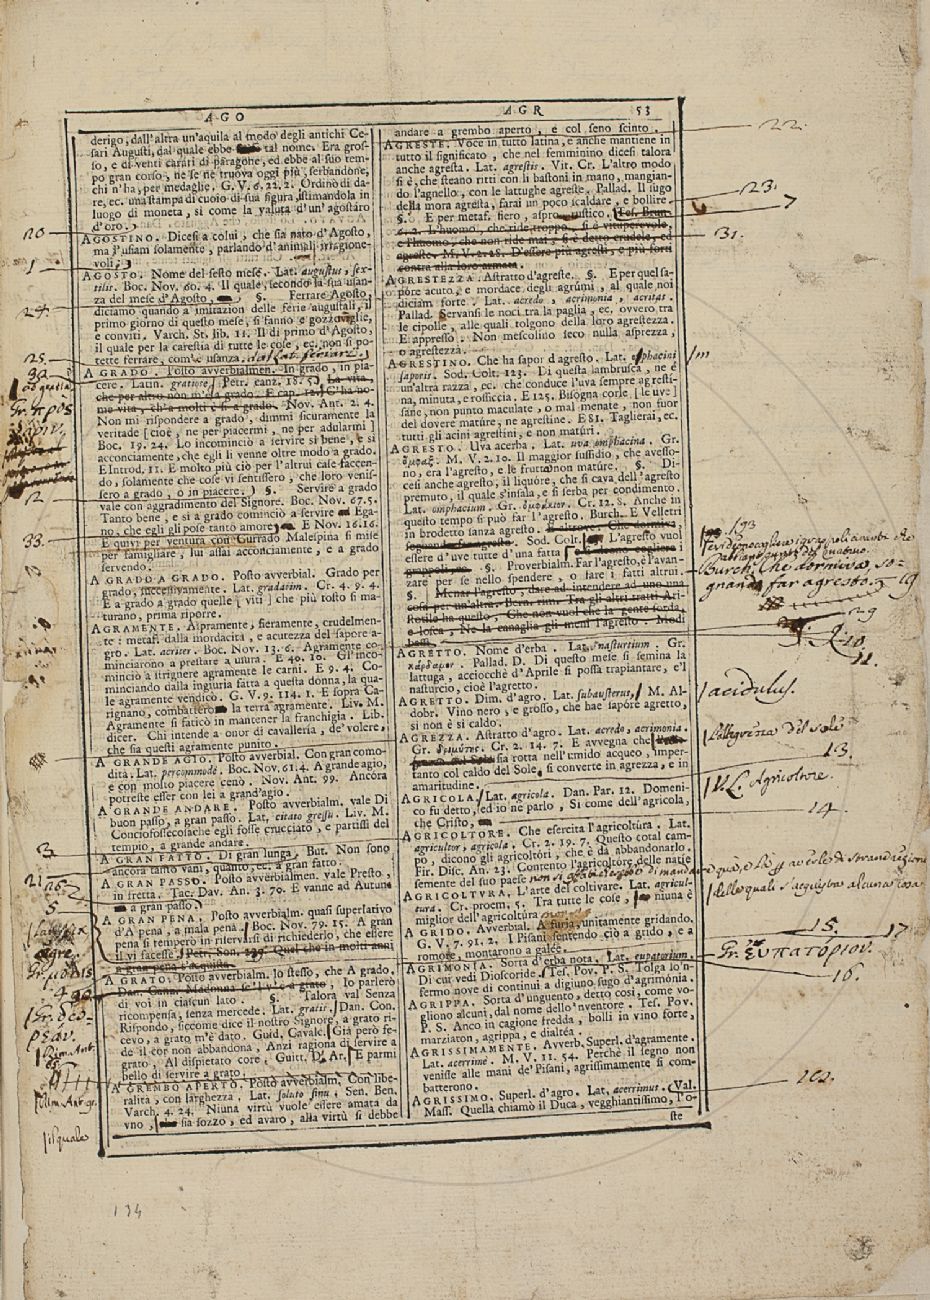 AGO
AGR 53
derigo, dall'altra un'aquila al modo degli antichi Ce-
sari Augusti, dal quale ebbe tal nome. Era gros-
so, e di venti carati di paragone, ed ebbe al suo tem-
po gran corso, ne se ne truova oggi più, serbandone,
chi n'ha, per medaglie. G. V. 6. 22. 2. Ordinò di da-
re, ec. una stampa di cuoio di sua figura, stimandola in
luogo di moneta, si come la valuta d'un'agostaro
d'oro.
AGOSTINO. Dicesi a colui, che sia nato d'Agosto,
ma s'usiam solamente, parlando d'animali irragione-
voli.
AGOSTO. Nome del sesto mese. Lat. augustus, sex-
tilis. Boc. Nov. 60. 4. Il quale, secondo la sua usan-
za del mese d'Agosto, §. Ferrare Agosto,
diciamo quando a imitazion delle ferie augustali, il
primo giorno di questo mese, si fanno e gozzoviglie,
e conviti. Varch. St. lib. 11. Il dì primo d'Agosto,
il quale per la carestia di tutte le cose, ec. non si po-
tette ferrare, com'è usanza. dal Lat. feriari.
A GRADO. Posto avverbialmen. In grado, in pia-
cere. Latin. gratiose. Petr. canz. 18. 5. La vita,
che per altro non m'è a grado. E cap. 12. C'ha no-
me vita, ch'a molti è sì a grado. Nov. Ant. 2. 4.
Non mi rispondere a grado, dimmi sicuramente la
veritade [cioè, ne per piacermi, ne per adularmi]
Boc. 19. 24. Lo incominciò a servire sì bene, e sì
acconciamente, che egli li venne oltre modo a grado.
E Introd. 11. E molto più ciò per l'altrui case faccen-
do, solamente che cose vi sentissero, che loro venis-
sero a grado, o in piacere.) §. Servire a grado
vale con aggradimento del Signore. Boc. Nov. 67. 5.
Tanto bene, e sì a grado cominciò a servire Ega-
no, che egli gli pose tanto amore, E Nov. 16. 16.
E quivi per ventura con Currado Malespina si mise
per famigliare, lui assai acconciamente, e a grado
servendo.
A GRADO A GRADO. Posto avverbial. Grado per
grado, successivamente. Lat. gradatim. Cr. 4. 9. 4.
E a grado a grado quelle [viti] che più tosto si ma-
turano, prima riporre.
AGRAMENTE. Aspramente, fieramente, crudelmen-
te: metaf. dalla mordacità, e acutezza del sapore a-
gro. Lat. acriter. Boc. Nov. 13. 6. Agramente co-
minciarono a prestare a usura. E 40. 10. Gl'inco-
minciò a strignere agramente le carni. E 9. 4. Co-
minciando dalla ingiuria fatta a questa donna, la qua-
le agramente vendicò. G. V. 9. 114. 1. E sopra Ca-
rignano, combattero la terra agramente. Liv. M.
Agramente si faticò in mantener la franchigia. Lib.
dicer. Chi intende a onor di cavalleria, de' volere,
che sia questi agramente punito.
A GRANDE AGIO. Posto avverbial. Con gran como-
dità. Lat. percommodè. Boc. Nov. 61. 4. A grande agio,
e con molto piacere cenò. Nov. Ant. 99. Ancora
potreste esser con lei a grand'agio.
A GRANDE ANDARE. Posto avverbialm. vale Di
buon passo, a gran passo. Lat. citato gressu. Liv. M.
Conciofossecosachè egli fosse crucciato, e partissi del
tempio, a grande andare.
A GRAN FATTO. Di gran lunga, But. Non sono
ancora tanto vani, quanto, ec. a gran fatto.
A GRAN PASSO. Posto avverbialmen. vale Presto,
in fretta. Tac. Dav. An. 3. 70. E vanne ad Autun
a gran passo.
A GRAN PENA. Posto avverbialm. quasi superlativo
d'A pena, a mala pena. Boc. Nov. 79. 15. A gran
pena si temperò in riservarsi di richiederlo, che essere
il vi facesse. Petr. Son. Quel che in molti anni
a gran pena s'acquista.
A GRATO. Posto avverbialm. lo stesso, che A grado.
Dan. Canz. Madonna se'l v'è a grato, Io parlerò
di voi in ciascun lato. §. Talora val Senza
ricompensa, senza mercede. Lat. gratis. Dan. Con.
Rispondo, siccome dice il nostro Signore, a grato ri-
cevo, a grato m'è dato. Guid, Cavalc. Già però fe-
de il cor non abbandona, Anzi ragiona di servire a
grato, Al dispietato core, Guitt. D'Ar. E parmi
bello di servire a grato.
A GREMBO APERTO. Posto avverbialm. Con libe-
ralità, con larghezza, Lat. soluto sinu, Sen. Ben.
Varch. 4. 24. Niuna virtù vuole essere amata da
vno, sia sozzo, ed avaro, alla virtù si debbe
andare a grembo aperto, e col seno scinto.
AGRESTE. Voce in tutto latina, e anche mantiene in
tutto il significato, che nel femminino dicesi talora
anche agresta. Lat. agrestis. Vit. Cr. L'altro modo
si è, che steano ritti con li bastoni in mano, mangian-
do l'agnello, con le lattughe agreste. Pallad. Il sugo
della mora agresta, farai un poco scaldare, e bollire
§. E per metaf. fiero, aspro, rustico. Tes. Brun.
6. 2. L'huomo, che ride troppo, si è vituperevole,
e l'huomo, che non ride mai, si è detto crudele, ed
agreste. M. V. 2. 18. D'essere più agresti, e più forti
contra alla loro armata.
AGRESTEZZA. Astratto d'agreste. §. E per quel sa-
pore acuto, e mordace degli agrumi, al quale noi
diciam forte. Lat. acredo, acrimonia, acritas.
Pallad. Servansi le noci tra la paglia, ec. ovvero tra
le cipolle, alle quali tolgono della loro agrestezza.
E appresso. Non mescolino seco nulla asprezza,
o agrestezza.
AGRESTINO. Che ha sapor d'agresto. Lat. omphacini
saporis. Sod. Colt. 123. Di questa lambrusca, ne è
un'altra razza, ec. che conduce l'uva sempre agresti-
na, minuta, e rossiccia. E 125. Bisogna corle [le uve]
sane, non punto maculate, o mal menate, non fuor
del dovere mature, ne agrestine. E 81. Taglierai, ec.
tutti gli acini agrestini, e non maturi.
AGRESTO. Uva acerba. Lat. uva omphacina. Gr.
ὄμφαξ. M. V. 2. 10. Il maggior sussidio, che avesso-
no, era l'agresto, e le frutta non mature. §. Di-
cesi anche agresto, il liquore, che si cava dell'agresto
premuto, il quale s'insala, e si serba per condimento.
Lat. omphacium. Gr. ὀμφάκιον. Cr. 12. 8. Anche in
questo tempo si può far l'agresto. Burch. E Velletri
in brodetto sanza agresto. E altrove. Che dormiva,
sognando far agresto. Sod. Colt. L'agresto vuol
essere d'uve tutte d'una fatta
§. Proverbialm. Far l'agresto, è l'avan-
zare per se nello spendere, o fare i fatti altrui.
§. Menar l'agresto, dare ad intendere ad uno una
cosa per un'altra. Bern. rim. Tra gli altri tratti Ari-
stotile ha questo, Che non vuol che la gente sorda,
e losca, Ne la canaglia gli meni l'agresto.
AGRETTO. Nome d'erba. Lat. nasturtium. Gr.
κάρδαμον. Pallad. D. Di questo mese si semina la
lattuga, acciocchè d'Aprile si possa trapiantare, e'l
nasturcio, cioè l'agretto.
AGRETTO. Dim. d'agro. Lat. subausterus. M. Al-
dobr. Vino nero, e grosso, che hae sapore agretto,
si non è si caldo.
AGREZZA. Astratto d'agro. Lat. acredo, acrimonia.
Gr. δριμύτης. Cr. 2. 14. 7. E avvegna che
sia rotta nell'umido acqueo, imper-
tanto col caldo del Sole, si converte in agrezza, e in
amaritudine.
AGRICOLA. Lat. agricola. Dan. Par. 12. Domeni-
co fu detto, ed io ne parlo, Sì come dell'agricola,
che Cristo,
AGRICOLTORE. Che esercita l'agricoltura. Lat.
agricultor, agricola. Cr. 2. 19. 7. Questo total cam-
po, dicono gli agricoltori, che è da abbandonarlo.
Fir. Disc. An. 23. Contento l'agricoltore delle natie
semente del suo paese non si gabbi cerchio di mandare
AGRICOLTVRA. L'arte del coltivare. Lat. agricul-
tura. Cr. proem. 5. Tra tutte le cose, niuna è
miglior dell'agricoltura
A GRIDO. Avverbial. A furia, unitamente gridando.
G. V. 7. 91. 2. I Pisani sentendo ciò a grido, e a
romore, montarono a galèe.
AGRIMONIA. Sorta d'erba nota. Lat. eupatorium.
Di cui vedi Dioscoride. Tes. Pov. P. S. Tolga lo'n-
fermo nove di continui a digiuno sugo d'agrimonia.
AGRIPPA. Sorta d'unguento, detto così, come vo-
gliono alcuni, dal nome dello'nventore. Tes. Pov.
P. S. Anco in cagione fredda, bolli in vino forte,
marziaton, agrippa, e dialtèa.
AGRISSIMAMENTE. Avverb. Superl. d'agramente.
Lat. acerrimè. M. V. 11. 54. Perchè il segno non
venisse alle mani de' Pisani, agrissimamente si com-
batterono.
AGRISSIMO. Superl. d'agro. Lat. acerrimus. (Val.
Mass. Quella chiamò il Duca, vegghiantissimo, l'o-
ste
20
1
24
25
32
Gr. πρὸς
12
33
3
21
5
Gr. μόλις
il quale
22.
23.
7
31.
m
193
Burch. Che dormiva, so-
gnando far agresto.
19
29
R 10
11.
acidulus.
Pellegrina del sole
13.
V. L. Agricoltore.
14
15. 17
Gr. Ευπατόριον.
16
102.
134